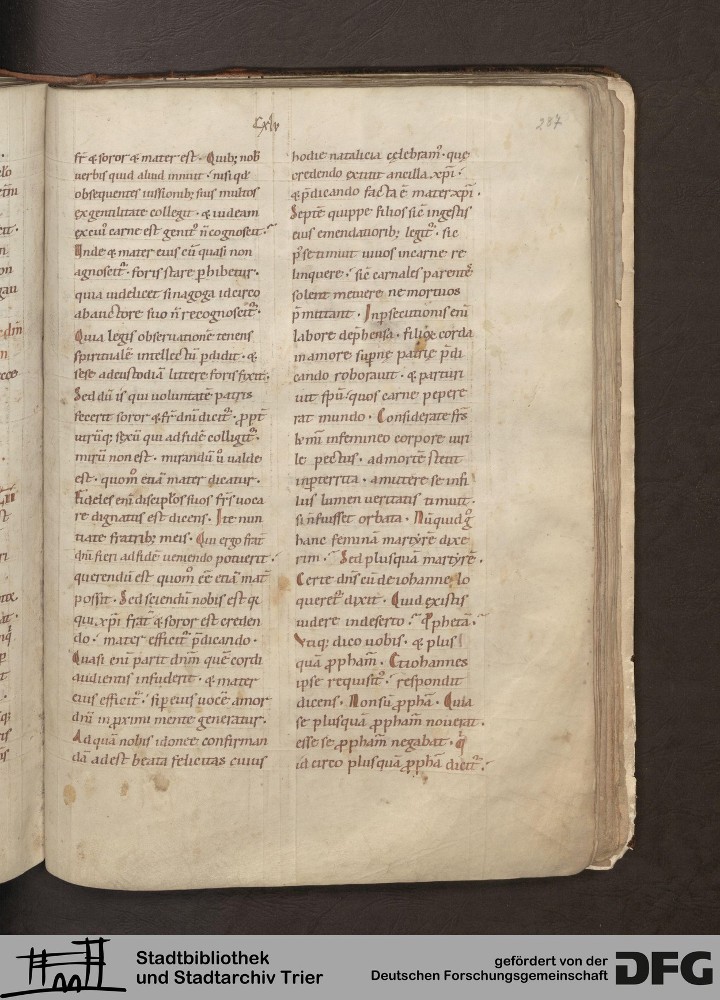 Cxlv
287
fr̄ & soror & mater est · Quib; nob̄
uerbis quid aliud innuit · nisi qđ
obsequentes iussionib; suis multos
ex gentilitate collegit · & iudeam
ex cui᷒ carne est genit᷒ n̄ cognoscit ·
Unde & mater eius cū quasi non
agnoscit᷑ · foris stare ꝓhibetur ·
quia uidelicet sinagoga idcirco
ab auctore suo n̄ recognoscit᷑ ·
Quia legis obseruationē tenens
spiritualē intellectū ꝑdidit · &
sese ad custodiā littere foris fixit ·
Sed dū is qui uoluntatē patris
fecerit soror & fr̄ dn̄i dicit᷑ · ꝓpt̄
utrūq; sexū qui ad fidē colligit᷑ ·
mirū non est · mirandū ū ualde
est · quom̊ etiā mater dicatur ·
Fideles eni discipl'os suos fr̄s uoca
re dignatus est dicens · Ite nun
tiate fratrib; meis · Qui ergo frat̄
dn̄i fieri ad fidē ueniendo potuerit ·
querendū est quom̊ ēe etiā mat̄
possit · Sed sciendū nobis est q̄
qui xp̄i frat̄ & soror est creden
do · mater efficit᷑ p̄dicando ·
Quasi eni parit dn̄m quē cordi
audientis infuderit · & mater
eius efficit᷑ · si ꝑ eius uocē amor
dn̄i in ꝓximi mente generatur ·
Ad quā nobis idonee confirman
dā adest beata felicitas cuius
hodie natalicia celebram᷒ · que
credendo extitit ancilla xp̄i ·
& p̄dicando facta ē mater xp̄i ·
Septē quippe filios sic̄ in gestis
eius emendatiorib; legit᷑ · sic
p᷒ se timuit uiuos in carne re
linquere · sic̄ carnales parentes
solent metuere ne mortuos
p̄mittant · In ꝑsecutionis eni
labore dep̄hensa · filioꝝ corda
in amore sup̄ne patrie p̄di
cando roborauit · & parturi
uit sp̄u quos carne pepere
rat mundo · Considerate fr̄s
k̄mi in femineo corpore uiri
le pectus · ad mortē stetit
inꝑterrita · amittere se in fi
liis lumen ueritatis timuit ·
si n̄ fuisset orbata · Nūquid g̊
hanc feminā martyrē dixe
rim · Sed plusquā martyrē ·
Certe dn̄s cū de iohanne lo
queret᷑ dixit · Quid existis
uidere in deserto · Ꝓphetā ·
Vtiq; dico uobis · & plus
quā ꝓpham̄ · Et iohannes
ipse requisit᷒ · respondit
dicens · Non sū ꝓphā · Quia
se plusquā ꝓpham̄ nouerat ·
esse se ꝓpham̄ negabat · q̄
idcirco plusquā ꝓphā dicit᷑ ·
Stadtbibliothek
und Stadtarchiv Trier
gefördert von der
Deutschen Forschungsgemeinschaft
DFG